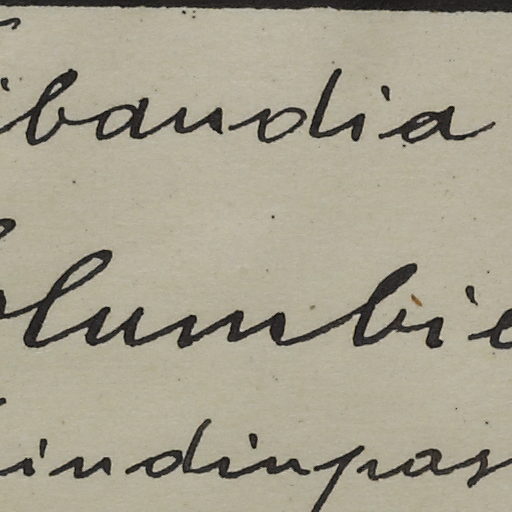 ibaudia
olumbie
indinpas